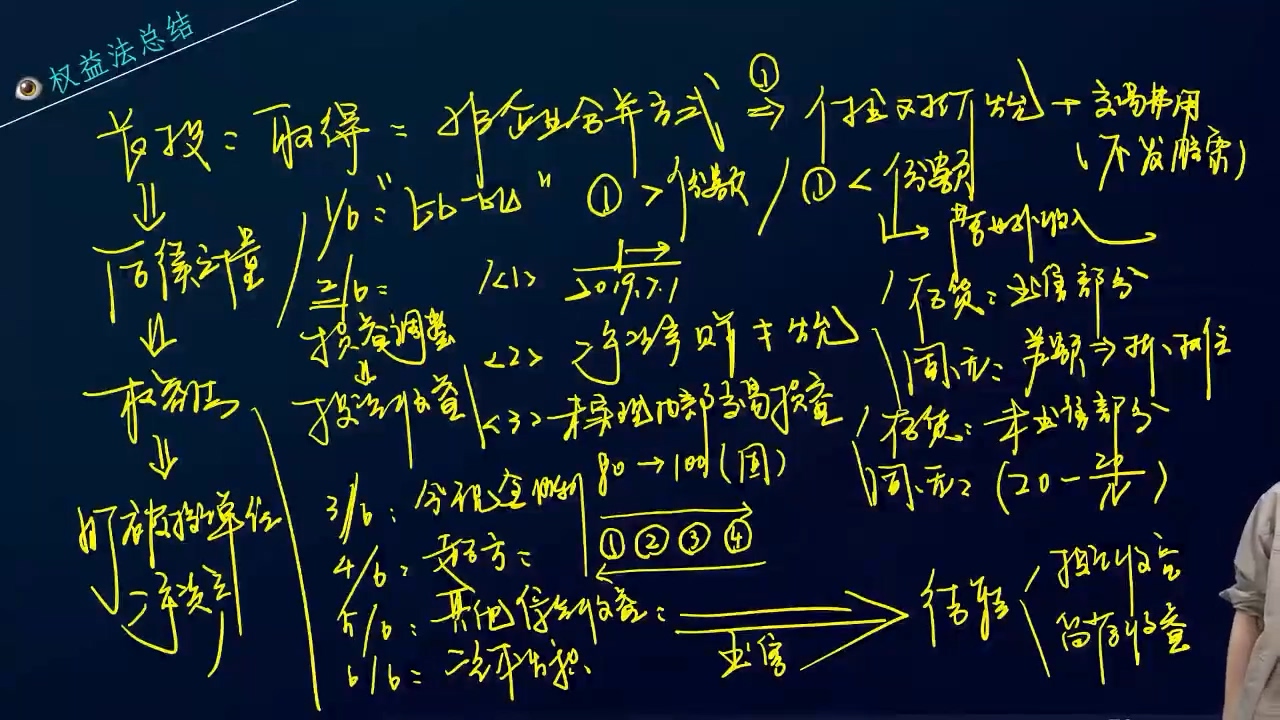 权益法总结
长投：取得：非企业合并方式 ① ⇒ 付出对价公允 + 交易费用
（不发股票）
后续计量 1/6："比一比" ① > 份额 / ① < 份额
营业外收入
2/6： <1> 2019.7.1
存货：出售部分
损益调整 <2> 净资产账 公允
固、无：差额 ⇒ 折、摊
权益法 投资收益 <3> 未实现内部交易损益
存货：未出售部分
80 → 100（固） 固、无：(20 - 20/N)
3/6：分现金股利
① ② ③ ④
享被投单位净资产
4/6：
5/6：其他综合收益： 出售 结转 投资收益
留存收益
6/6：